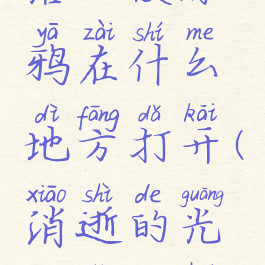 yā zài shí me
鸦在什么
dì fāng dǎ kāi
地方打开(
xiāo shì de guāng
消逝的光